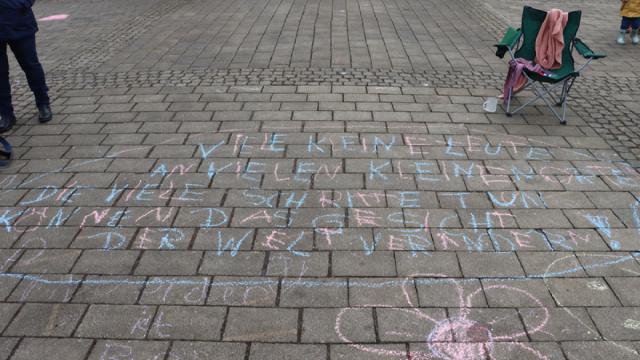 VIELE KLEINE LEUTE
AN VIELEN KLEINEN ORTEN
DIE VIELE SCHRITTE TUN
KÖNNEN DAS GESICHT
DER WELT VERÄNDERN